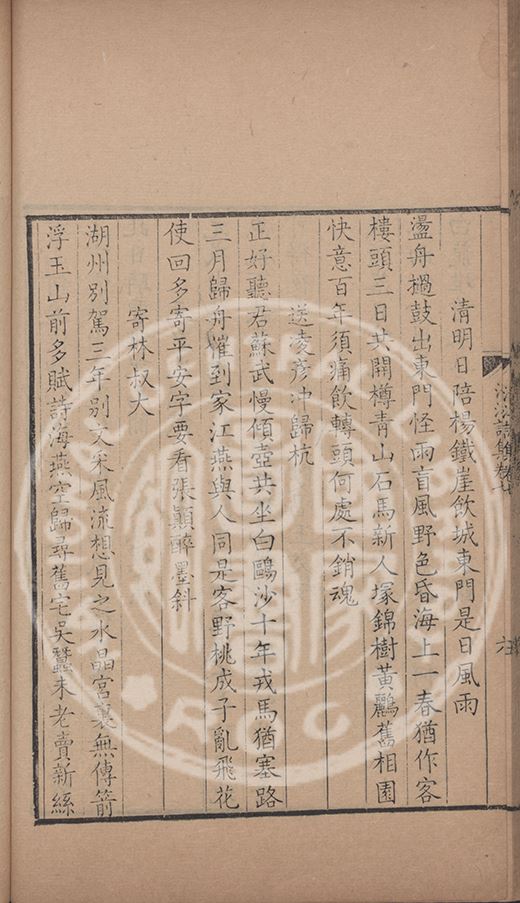 詩集卷七
六
清明日陪楊鐵崖飲城東門是日風雨
盪舟撾鼓出東門怪雨盲風野色昏海上一春猶作客
樓頭三日共開樽青山石馬新人塚錦樹黃鸝舊相園
快意百年須痛飲轉頭何處不銷魂
送凌彥冲歸杭
正好聽君蘇武慢傾壺共坐白鷗沙十年戎馬猶塞路
三月歸舟催到家江燕與人同是客野桃成子亂飛花
使回多寄平安字要看張顛醉墨斜
寄林叔大
湖州別駕三年別文采風流想見之水晶宮裏無傳箭
浮玉山前多賦詩海燕空歸尋舊宅吳蠶未老賣新絲